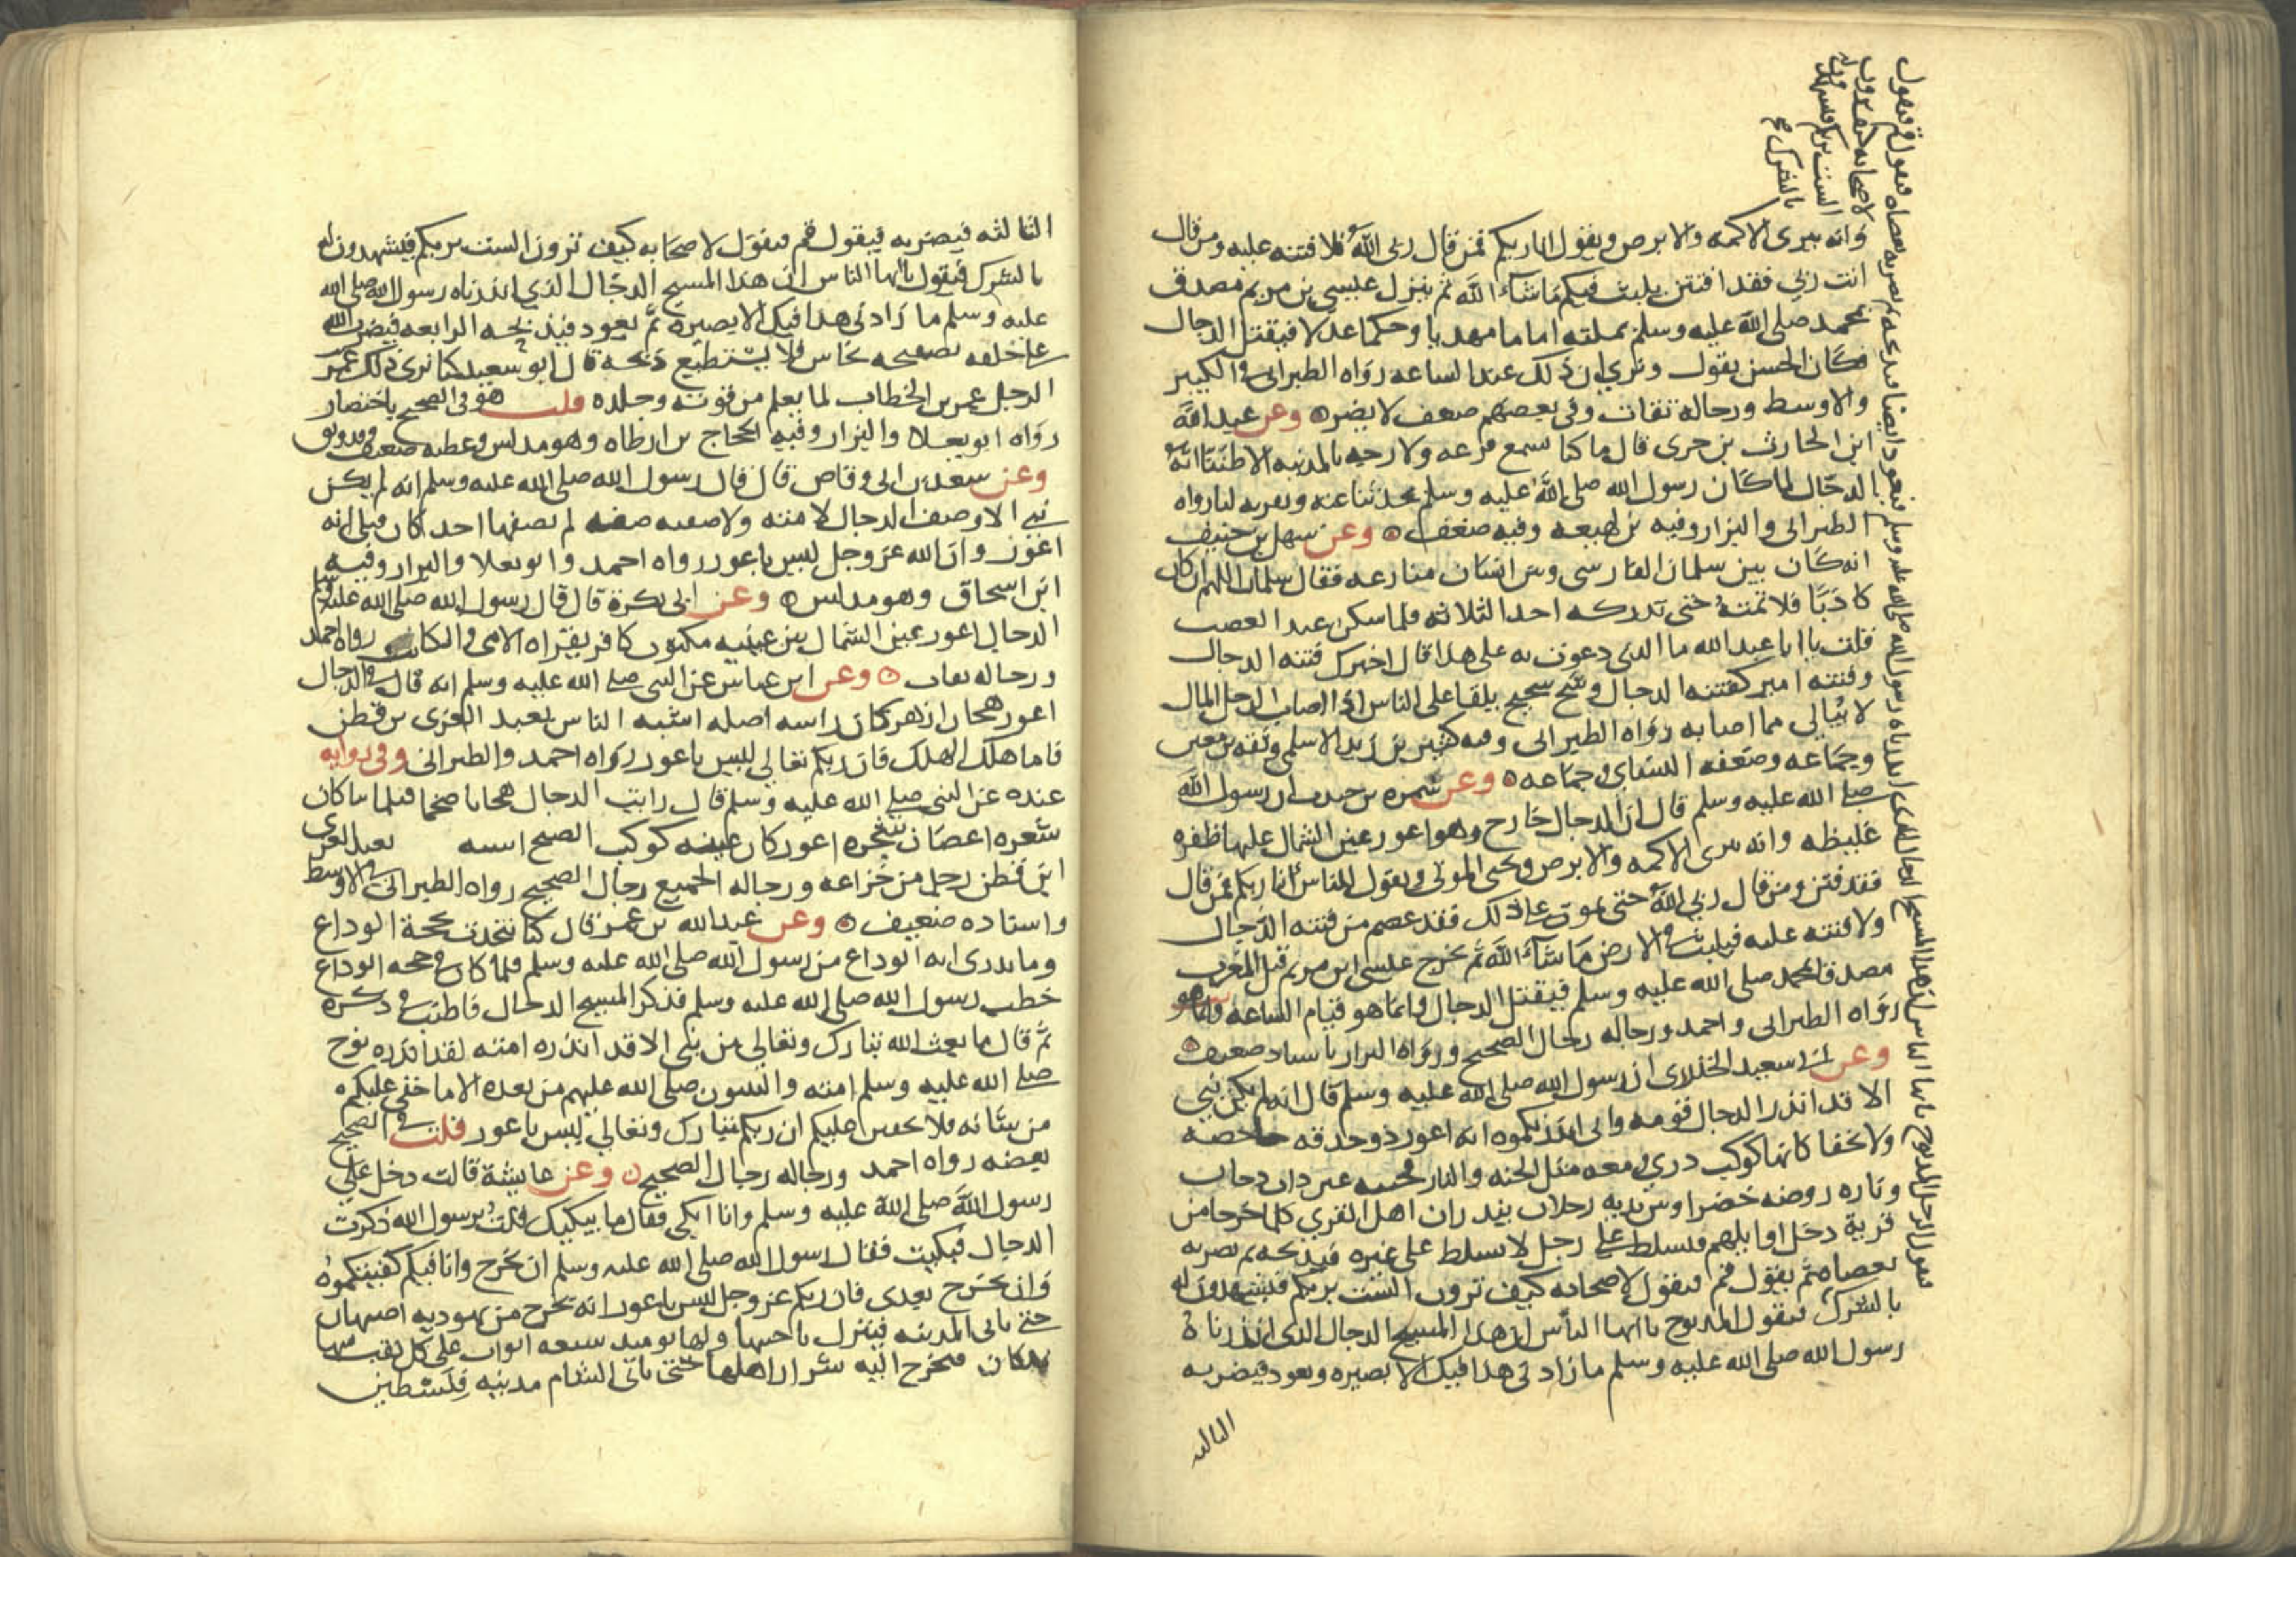 وانه يبرى الاكمه والابرص ويقول انا ربكم فمن قال ربى الله فلا فتنه عليه ومن قال
انت ربي فقد افتتن يلبث فيكم ما شاء الله ثم ينزل عيسى بن مريم مصدق
بمحمد صلى الله عليه وسلم بملته اماما مهديا وحكما عدلا فيقتل الدجال
فكان الحسن يقول ونرى ان ذلك عند الساعه رواه الطبرانى فى الكبير
والاوسط ورجاله ثقات وفى بعضهم ضعف لا يضره وعن عبد الله
ابن الحارث بن جزى قال ما كنا نسمع فزعه ولا رجه بالمدينه الا ظننا انه
الدجال لما كان رسول الله صلى الله عليه وسلم يحدثنا عنه ويقربه لنا رواه
الطبرانى والبزار وفيه بن لهيعه وفيه ضعف وعن سهل بن حنيف
انه كان بين سلمان الفارسى وبين انسان منازعه فقال سلمان اللهم ان كان
كاذبا فلا تمته حتى تدركه احد الثلاثه فلما سكن عنه الغضب
قلت يا ابا عبد الله ما الذى دعوت به على هذا قال اخبرك فتنه الدجال
وفتنه امير كفتنه الدجال وشح شحيح يلقا على الناس اذا اصاب الرجل المال
لا يبالي مما اصابه رواه الطبرانى وفيه كثير بن زيد الاسلمى وثقه بن معين
وجماعه وضعفه النسائى وجماعه وعن سمره بن جندب ان رسول الله
صلى الله عليه وسلم قال ان الدجال خارج وهو اعور عين الشمال عليها ظفره
غليظه وانه يبرى الاكمه والابرص ويحى الموتى ويقول للناس انا ربكم فمن قال
فقد فتن ومن قال ربي الله حتى يموت على ذلك فقد عصم من فتنه الدجال
ولا فتنه عليه فيلبث فى الارض ما شاء الله ثم يخرج عيسى ابن مريم قبل المغرب
مصدقا بمحمد صلى الله عليه وسلم فيقتل الدجال وانما هو قيام الساعه
رواه الطبرانى واحمد ورجاله رجال الصحيح ورواه البزار باسناد ضعيف
وعن ابى سعيد الخدرى ان رسول الله صلى الله عليه وسلم قال انه لم يكن نبي
الا قد انذر الدجال قومه وانى انذركموه انه اعور ذو حدقه جاحضه
ولا تخفا كانها كوكب دري ومعه مثل الجنه والنار
وناره روضه خضرا وبين يديه رجلان ينذران اهل القرى كلما خرجا من
قرية دخل اوايلهم فيسلط على رجل لا يسلط على غيره فيذبحه ثم يضربه
بعصاه ثم يقول قم فيقول لاصحابه كيف ترون الست بربكم فيشهدون له
بالشرك فيقول المذبوح يا ايها الناس ان هذا المسيح الدجال الذى انذرناه
رسول الله صلى الله عليه وسلم ما زادنى هذا فيك الا بصيره ويعود فيضربه
الثالثه
فيقول الرجل المذبوح يا ايها الناس ان هذا المسيح الدجال الذى انذرناه رسول الله صلى الله عليه وسلم فيعود ايضا فيذبحه ثم يضربه بعصاه فيقول قم فيقول
لاصحابه كيف ترون
الست بربكم فيشهدون له
بالشرك
الثالثه فيضربه فيقول قم فيقول لاصحابه كيف ترون الست بربكم فيشهدون له
بالشرك فيقول يا ايها الناس ان هذا المسيح الدجال الذي انذرناه رسول الله صلى الله
عليه وسلم ما زادنى هذا فيك الا بصيره ثم يعود فيذبحه الرابعه فيضرب الله
على حلقه بصفيحه نحاس فلا يستطيع ذبحه قال ابو سعيد كنا نرى ذلك
الرجل عمر بن الخطاب لما يعلم من قوته وجلده قلت هو فى الصحيح باختصار
رواه ابو يعلا والبزار وفيه الحجاج بن ارطاه وهو مدلس وعطيه ضعيف وقد وثق
وعن سعد بن ابى وقاص قال قال رسول الله صلى الله عليه وسلم انه لم يكن
نبي الا وصف الدجال لامته ولاصفنه صفه لم يصفها احد كان قبلى انه
اعور وان الله عز وجل ليس باعور رواه احمد وابو يعلا والبزار وفيه
ابن اسحاق وهو مدلس وعن ابى بكرة قال قال رسول الله صلى الله عليه وسلم
الدجال اعور عين الشمال بين عينيه مكتوب كافر يقراه الامى والكاتب رواه احمد
ورجاله ثقات وعن ابن عباس عن النبى صلى الله عليه وسلم انه قال فى الدجال
اعور هجان ازهر كان راسه اصله اشبه الناس بعبد العزى بن قطن
فاما هلك الهلك فان ربكم تعالى ليس باعور رواه احمد والطبرانى وفى روايه
عنده عن النبى صلى الله عليه وسلم قال رايت الدجال هجانا ضخما فيلمانيا كان
شعره اغصان شجره اعور كان عينه كوكب الصبح اشبه بعبد العزى
ابن قطن رجل من خزاعه ورجاله الجميع رجال الصحيح رواه الطبرانى فى الاوسط
واسناده ضعيف وعن عبد الله بن عمر قال كنا نتحدث بحجة الوداع
وما ندرى انه الوداع من رسول الله صلى الله عليه وسلم فلما كان فى حجه الوداع
خطب رسول الله صلى الله عليه وسلم فذكر المسيح الدجال فاطنب فى ذكره
ثم قال ما بعث الله تبارك وتعالى من نبى الا قد انذره امته لقد انذره نوح
صلى الله عليه وسلم امته والنبيون صلى الله عليهم من بعده الا ما خفى عليكم
من شانه فلا يخفين عليكم ان ربكم تبارك وتعالى ليس باعور قلت فى الصحيح
بعضه رواه احمد ورجاله رجال الصحيح وعن عايشة قالت دخل على
رسول الله صلى الله عليه وسلم وانا ابكى فقال ما يبكيك قلت يرسول الله ذكرت
الدجال فبكيت فقال رسول الله صلى الله عليه وسلم ان يخرج وانا فيكم كفيتكموه
وان يخرج بعدى فان ربكم عز وجل ليس باعور انه يخرج من يهوديه اصبهان
حتى ياتى المدينه فينزل ناحيتها ولها يوميذ سبعه ابواب على كل نقب منها
ملكان فيخرج اليه شرار اهلها حتى ياتى الشام مدينه فلسطين